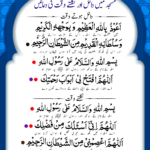 مسجد میں داخل اور نکلنے وقت کی دعائیں
داخل ہوتے وقت
اَعُوْذُ بِاللّٰهِ الْعَظِيْمِ وَ بِوَجْهِهِ الْكَرِيْمِ
وَسُلْطَانِهِ الْقَدِيْمِ مِنَ الشَّيْطَانِ الرَّجِيْمِ
بِسْمِ اللّٰهِ وَالسَّلَامُ عَلٰى رَسُوْلِ اللّٰهِ
اَللّٰهُمَّ افْتَحْ لِيْ اَبْوَابَ رَحْمَتِكَ
نکلتے وقت
بِسْمِ اللّٰهِ وَالسَّلَامُ عَلٰى رَسُوْلِ اللّٰهِ
اَللّٰهُمَّ اِنِّيْ اَسْئَلُكَ مِنْ فَضْلِكَ
اَللّٰهُمَّ اعْصِمْنِيْ مِنَ الشَّيْطَانِ الرَّجِيْمِ